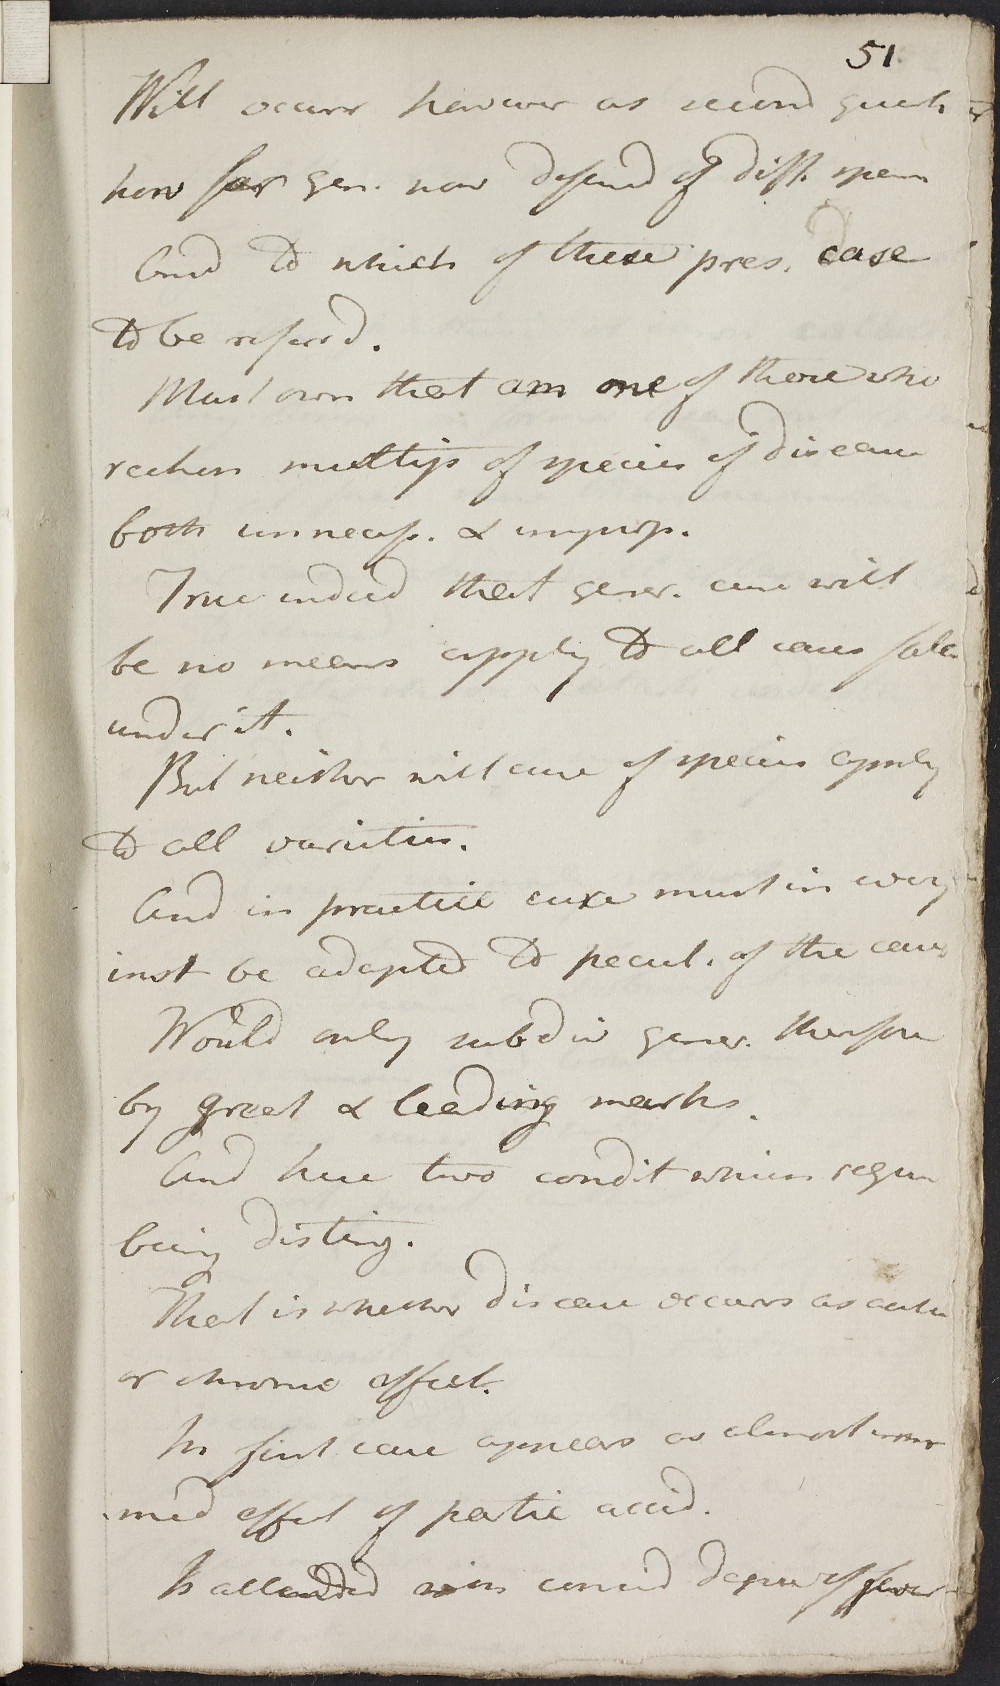 51
Will occurr however as second quest
how far gen. now defined of diff. spec
And to which of these pres. case
to be referrd.
Must own that am one of those who
reckon multip of species of disease
both unnecess. & improp.
True indeed that gener. cure will
be no means apply to all cases fal
under it.
But neither will cure of species apply
to all varieties.
And in practice cure must in every
inst be adapted to pecul. of the case
Would only subdiv gener. therefore
by great & leading marks.
And here two condit which requir
being disting.
That is whether disease occurs as acute
or chronic affect.
In first case appears as almost imm
med effect of partic accid.
Is attended with consid degree of fever